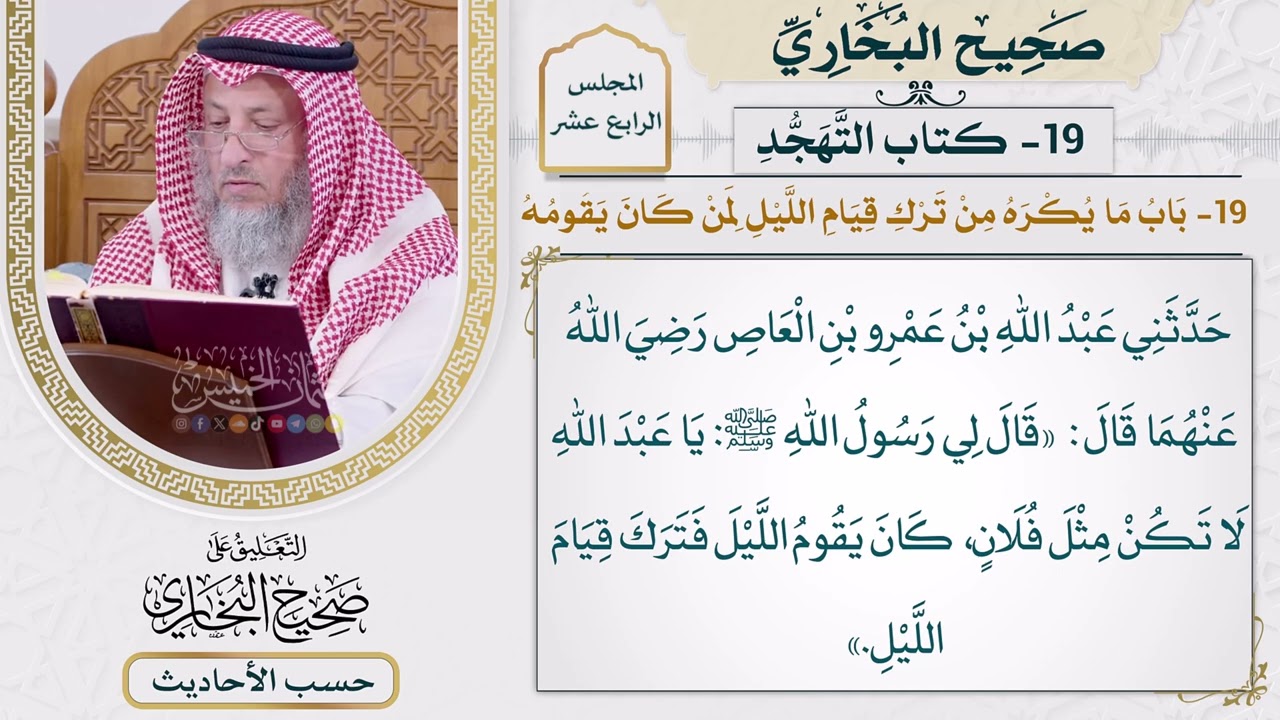 صَحِيح البُخَارِيِّ
المجلس
الرابع عشر
19- كتاب التَّهَجُّدِ
19- بَابُ مَا يُكْرَهُ مِنْ تَرْكِ قِيَامِ اللَّيْلِ لِمَنْ كَانَ يَقُومُهُ
حَدَّثَنِي عَبْدُ اللهِ بْنُ عَمْرِو بْنِ الْعَاصِ رَضِيَ اللهُ
عَنْهُمَا قَالَ: «قَالَ لِي رَسُولُ اللهِ ﷺ: يَا عَبْدَ اللهِ
لَا تَكُنْ مِثْلَ فُلَانٍ، كَانَ يَقُومُ اللَّيْلَ فَتَرَكَ قِيَامَ
اللَّيْلِ.»
عثمان الخميس
التَّعْلِيقُ عَلَى
صَحِيحِ الْبُخَارِيِّ
حسب الأحاديث